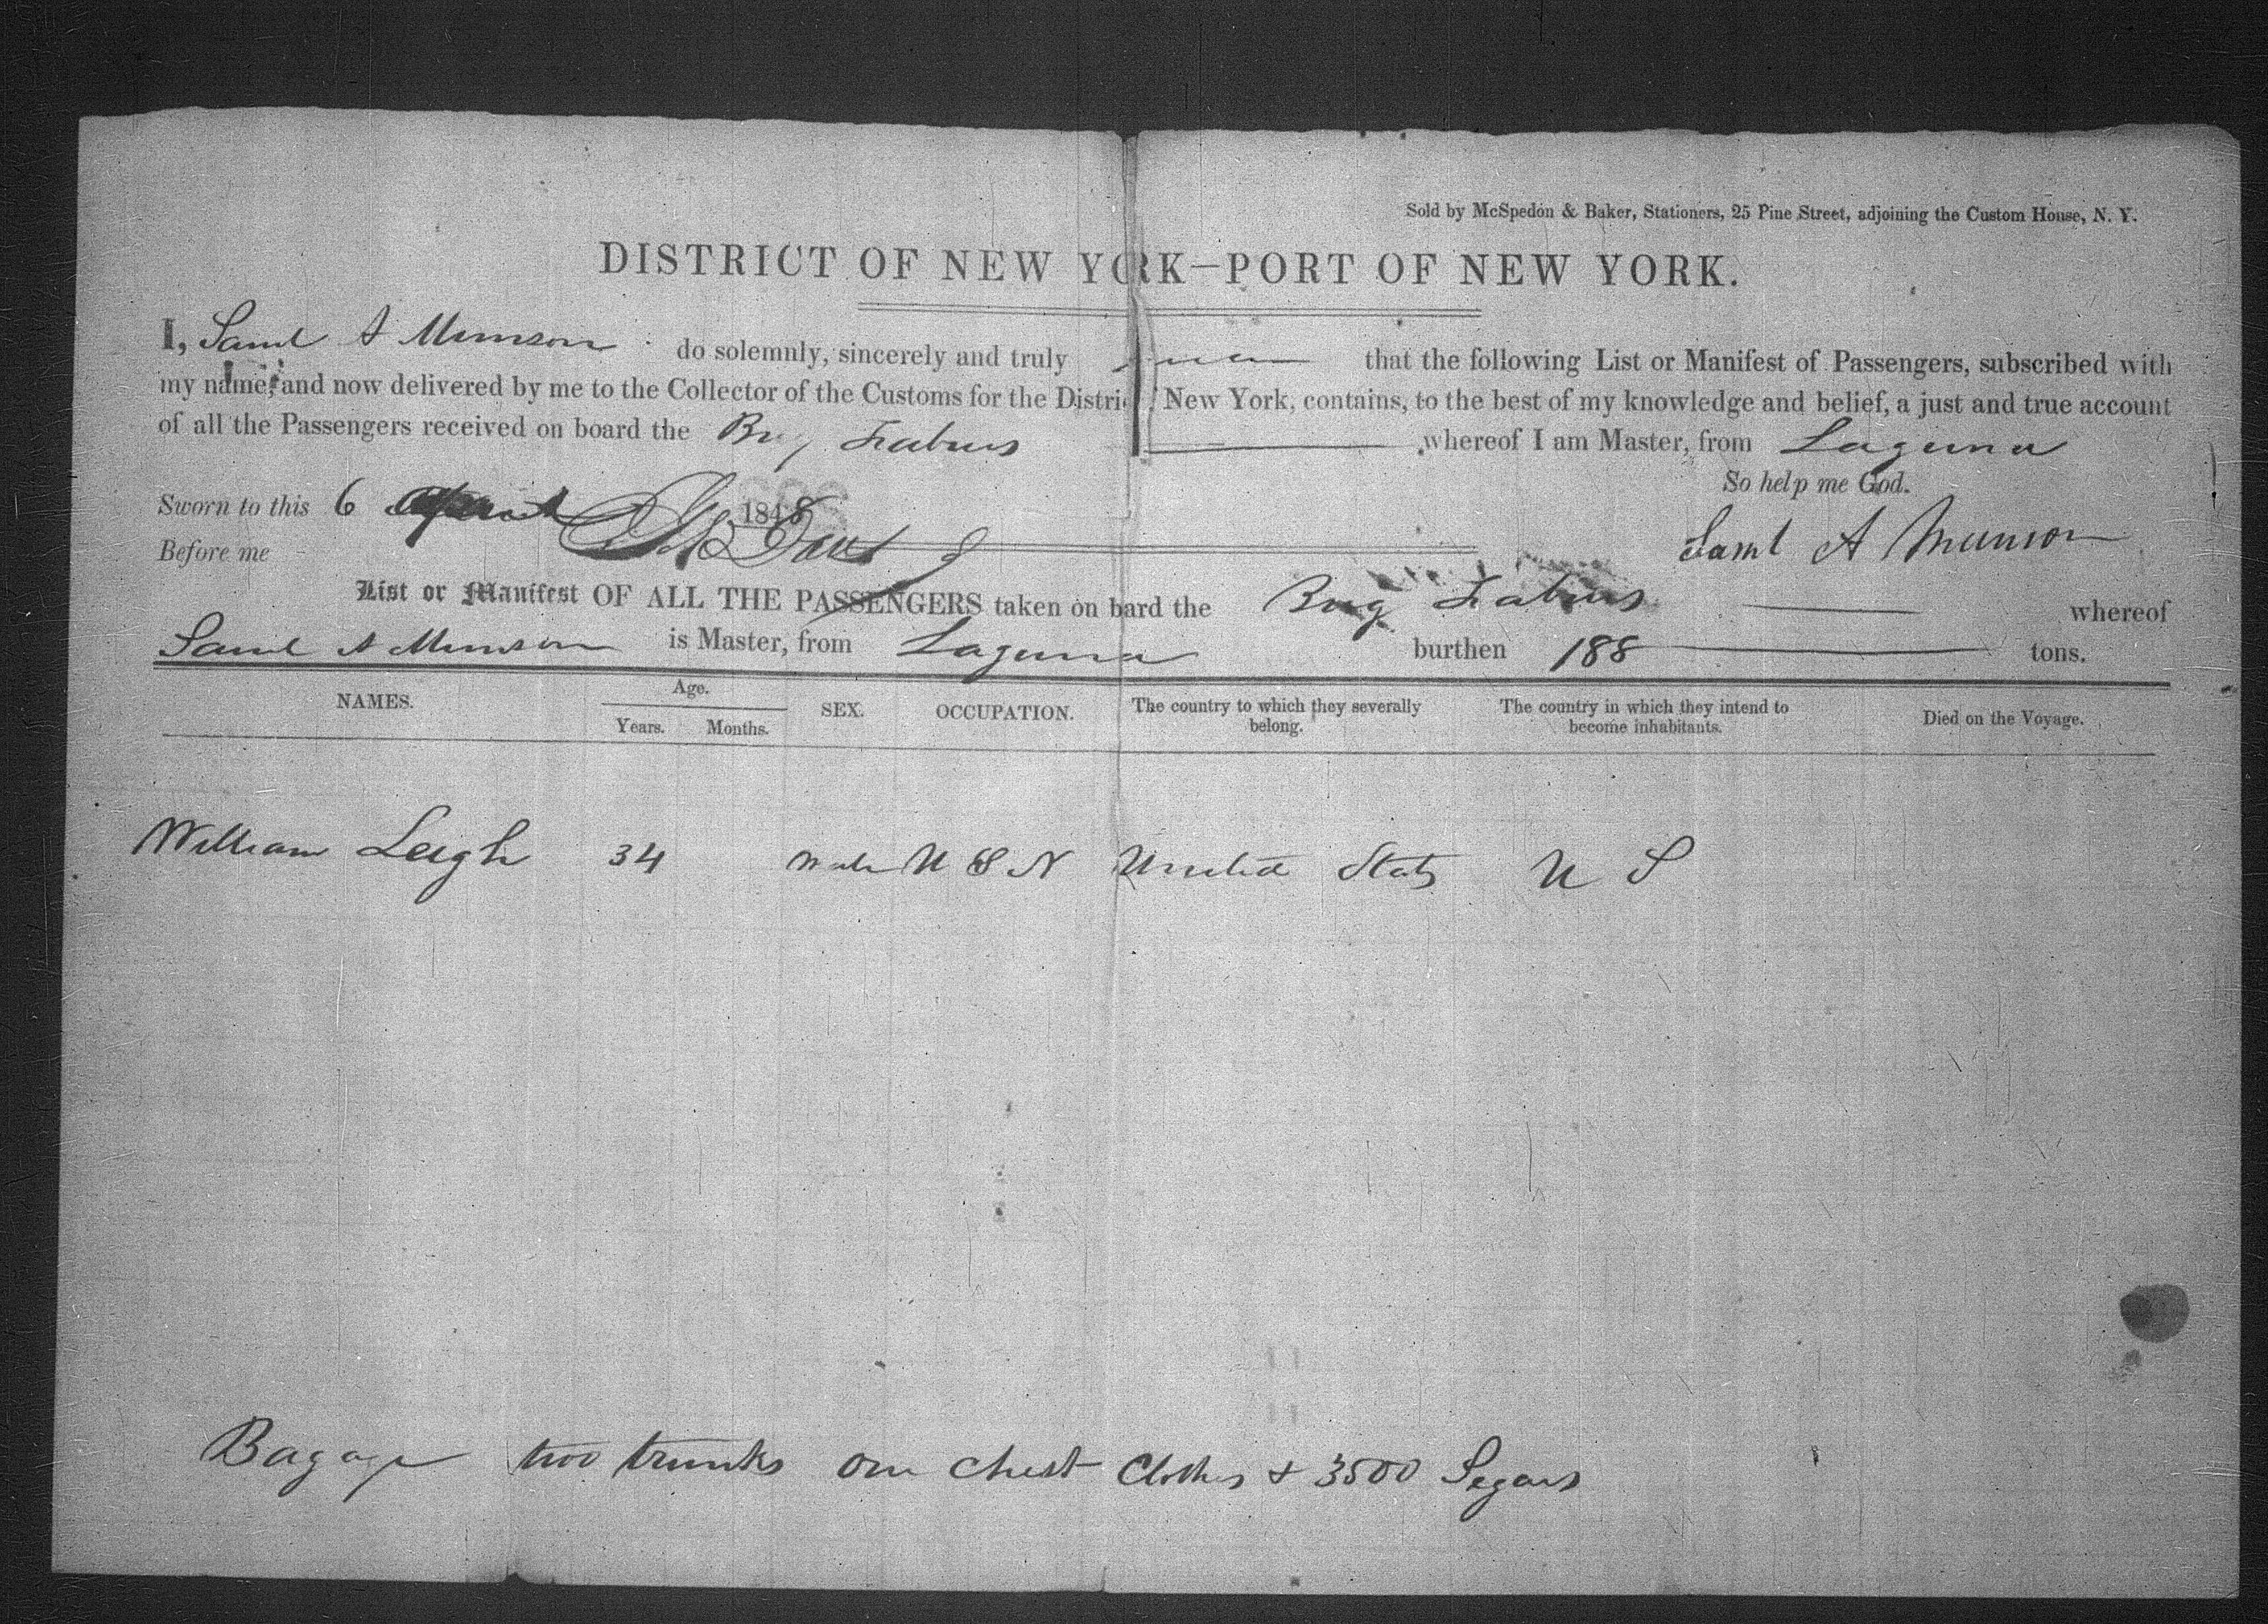 Sold by McSpedon & Baker, Stationers, 25 Pine Street, adjoining the Custom House, N. Y.
DISTRICT OF NEW YORK—PORT OF NEW YORK.
I, Saml A Munson do solemnly, sincerely and truly swear that the following List or Manifest of Passengers, subscribed with
my name, and now delivered by me to the Collector of the Customs for the Distri New York, contains, to the best of my knowledge and belief, a just and true account
of all the Passengers received on board the Brig Fabius whereof I am Master, from Laguna
So help me God.
Sworn to this 6 April 1848
Saml A Munson
Before me
List or Manifest OF ALL THE PASSENGERS taken on bard the Brig Fabius whereof
Saml A Munson is Master, from Laguna burthen 188 tons.
NAMES. Age. Years. Months. SEX. OCCUPATION. The country to which they severally belong. The country in which they intend to become inhabitants. Died on the Voyage.
William Leigh 34 Male U S N United Stats U S
Bagage two trunks one chest Clothes & 3500 Segars